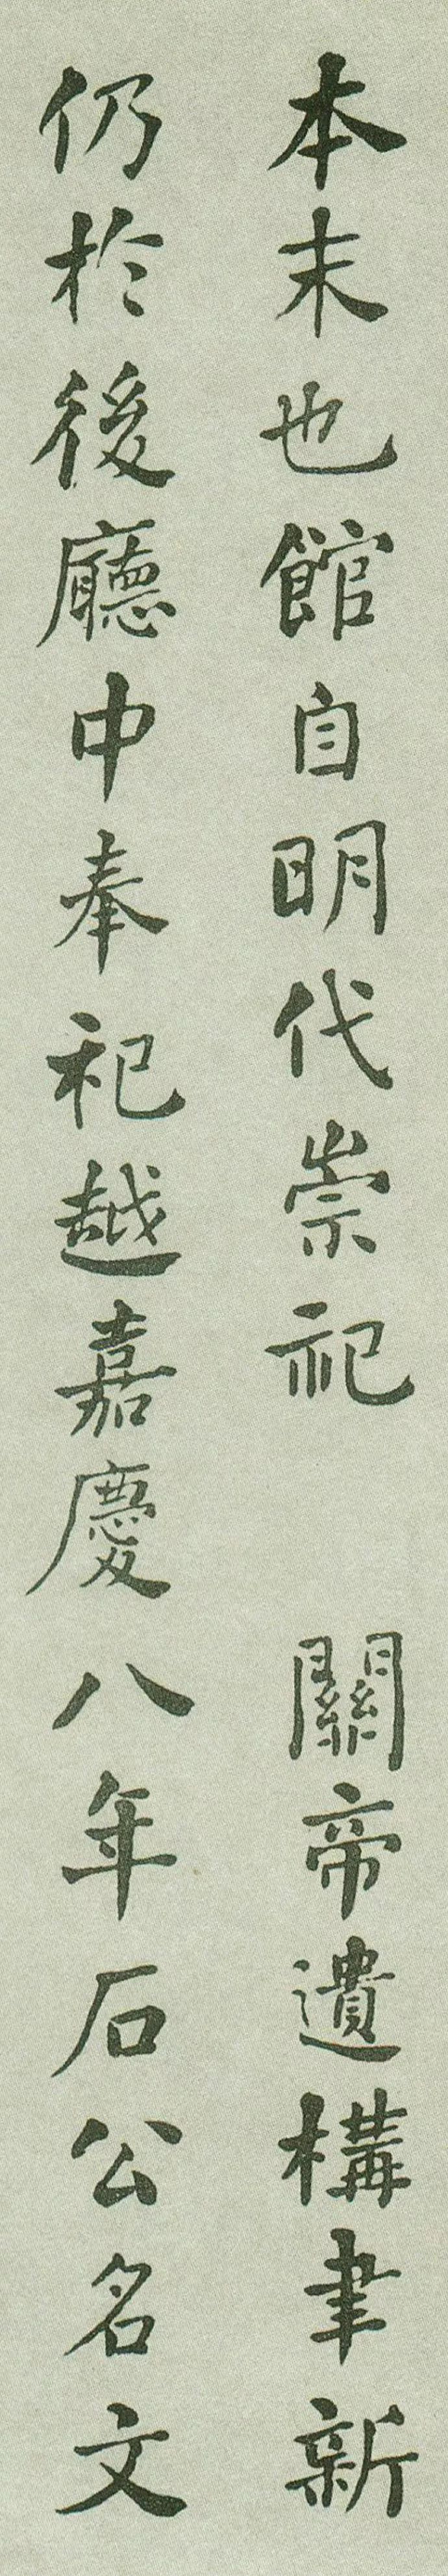 本末也館自明代崇祀 關帝遺構聿新
仍於後廳中奉祀越嘉慶八年石公名文